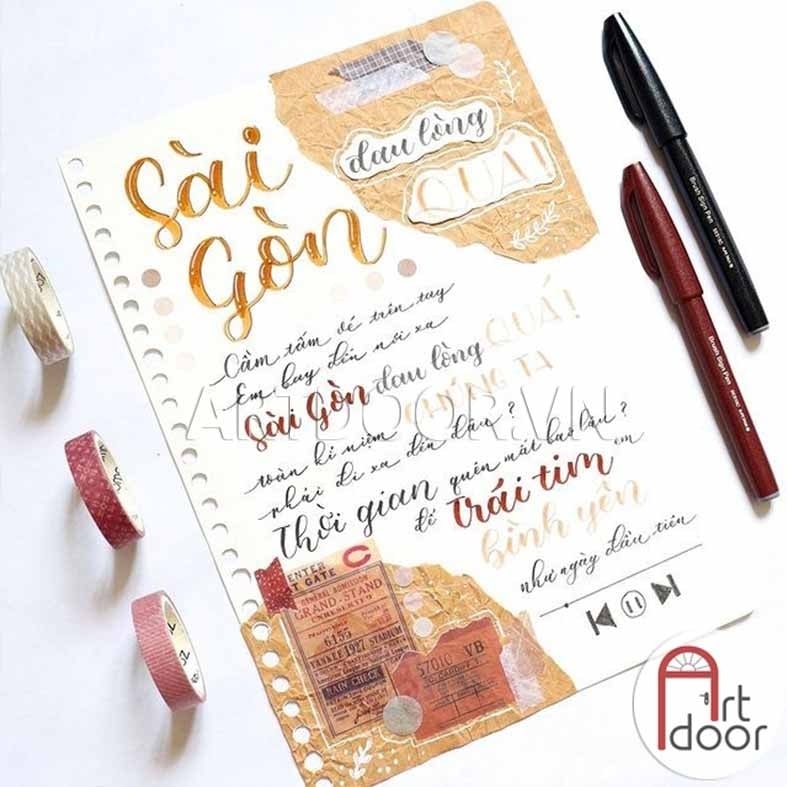 Sài
Gòn
đau lòng
QUÁ!
Cầm tấm vé trên tay
Em bay đến nơi xa
Sài Gòn đau lòng QUÁ!
toàn kỉ niệm CHÚNG TA
phải đi xa đến đâu?
Thời gian quên mất bao lâu?
để trái tim em
bình yên
như ngày đầu tiên
ENTER
GATE C
GENERAL ADMISSION
GRAND-STAND
UNRESERVED
6159
YANKEE STADIUM
RAIN CHECK
57010 VB
Brush Sign Pen
Brush Sign Pen
ARTDOOR.VN
Art
door